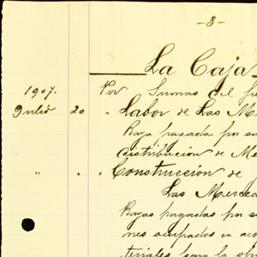 -8-
La Caja
1907. Por Sumas del
Julio 20 " Labor de Las M
Raya pasada por su
distribución de Ma
" " Construcción de
Las Merced
Rayas pagadas por s
nes ocupados en aco
teriales para la ob